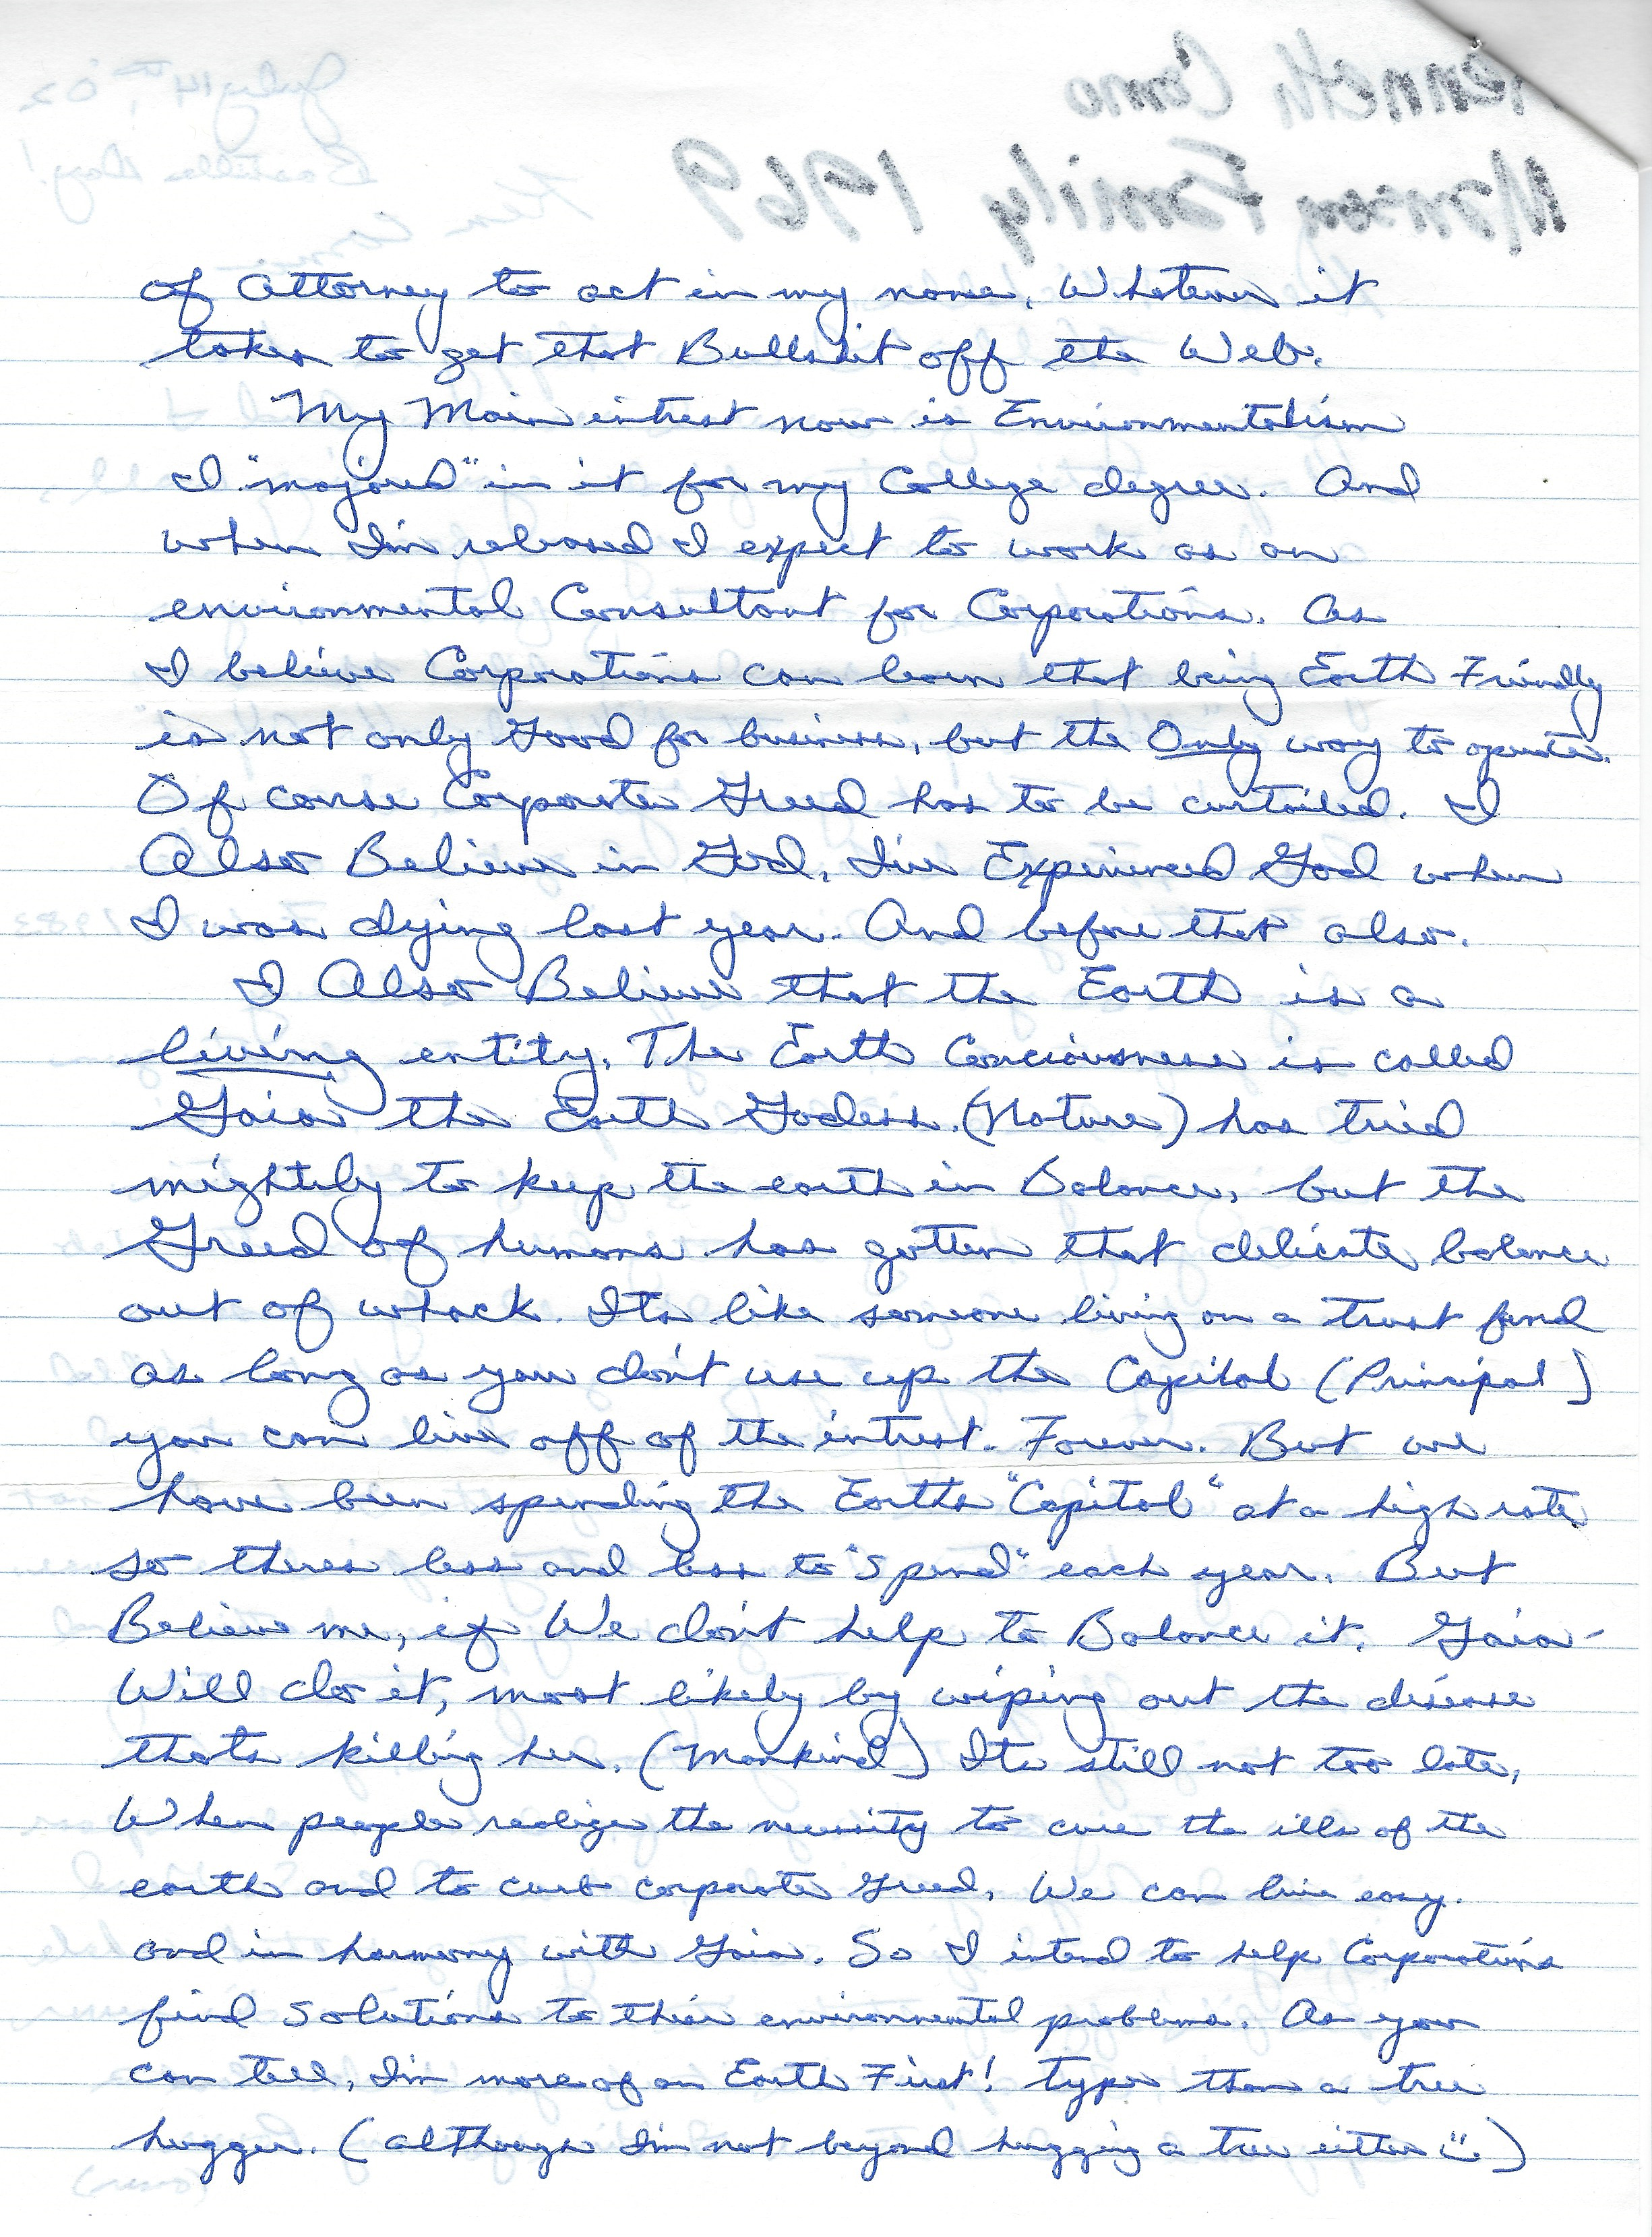 Kenneth Como
Manson Family 1969
July 14th, '02
Bastille Day!
Ken Como
of Attorney to act in my name. Whatever it
takes to get that Bullshit off the Web.
My Main intrest now is Environmentalism
I "majored" in it for my College degree. And
when I'm released I expect to work as an
environmental Consultant for Corporations. As
I believe Corporations can learn that being Earth Friendly
is not only Good for business, but the Only way to operate.
Of course Corporate Greed has to be curtailed. I
Also Believe in God, I've Experienced God when
I was dying last year. And before that also.
I Also Believe that the Earth is a
living entity. The Earth Conciousness is called
Gaia the Earth Godess. (Nature) has tried
mightily to keep the earth in Balance, but the
Greed of humans has gotten that delicate balance
out of whack. Its like someone living on a trust fund
as long as you don't use up the Capital (Principal)
you can live off of the intrest. Forever. But we
have been spending the Earths "Capital" at a high rate
so theres less and less to "spend" each year. But
Believe me, if We don't help to Balance it. Gaia-
Will do it, most likely by wiping out the disease
thats killing her. (Mankind) Its still not too late,
When people realize the necessity to cure the ills of the
earth and to curb corporate greed, We can live easy.
and in harmony with Gaia. So I intend to help Corporations
find solutions to their environmental problems. As you
can tell, I'm more of an Earth First! type than a tree
hugger. (although I'm not beyond hugging a tree either ☺.)
(over)